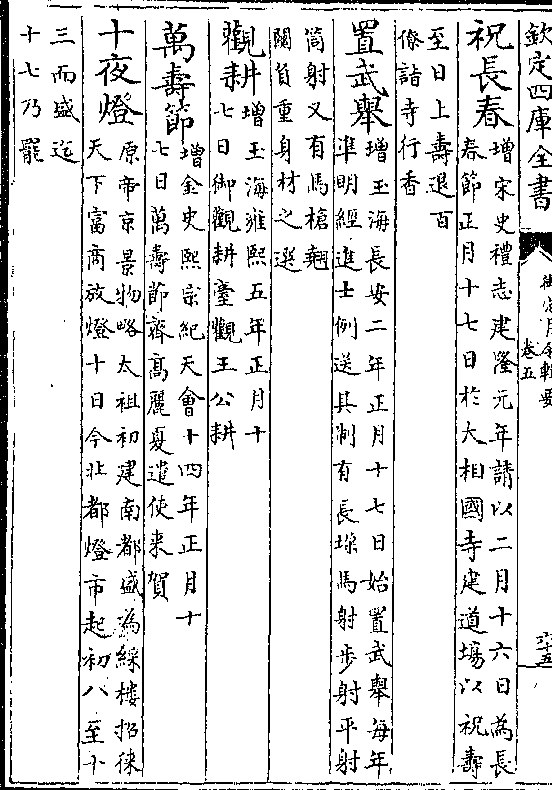 欽定四庫全書
御定月令輯要
卷五
祝長春增宋史禮志建隆元年請以二月十六日為長
春節正月十七日於大相國寺建道場以祝壽
至日上壽退百
僚詣寺行香
置武舉增玉海長安二年正月十七日始置武舉每年
準明經進士例送具制有長垜馬射步射平射
筒射又有馬槍翹
關負重身材之選
觀耕增玉海雍熙五年正月十
七日御觀耕臺觀王公耕
萬壽節增金史熙宗紀天會十四年正月十
七日萬壽節齊高麗夏遣使来賀
十夜燈原帝京景物略太祖初建南都盛為綵樓招徠
天下富商放燈十日今北都燈市起初八至十
三而盛迄
十七乃罷